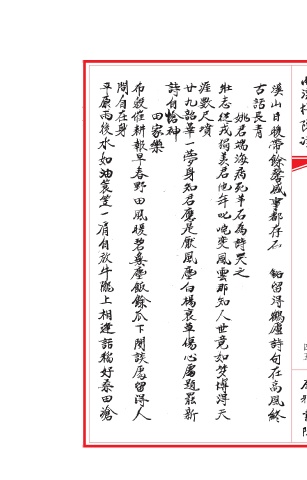 溪山日暖帶餘馨盛事都存石　銘留得鶴廬詩句在高風終
古話長青
姚君瑞海病死羊石為詩哭之
壯志從戎獨美君他年叱咤變風雲那知人世竟如夢博得天
涯數尺墳
廿九韶華一夢身知君應是厭風塵白楊衰草傷心處題罷新
詩自愴神
田家樂
布穀催耕報早春野田風暖碧無塵飯餘瓜下閒談處留得人
間自在身
平原雨後水如油蓑笠一肩自放牛隴上相逢話稼好桑田滄